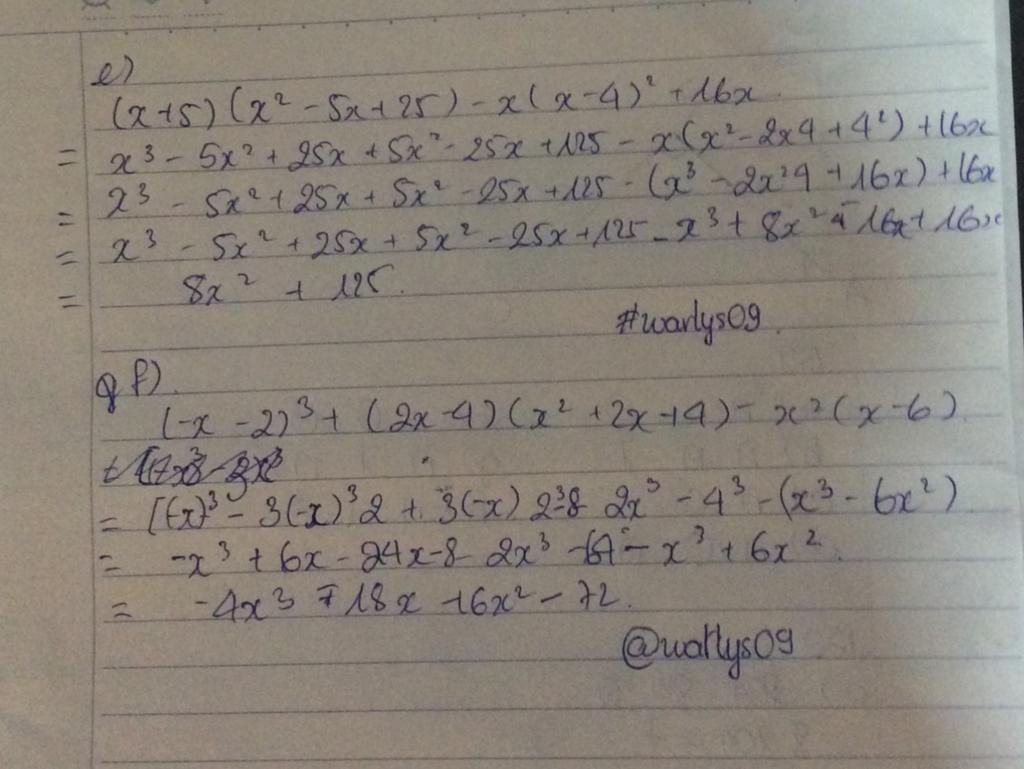 e)
(x+5)(x² - 5x+25) - x(x-4)² + 16x
= x³ - 5x² + 25x + 5x² - 25x + 125 - x(x² - 2x4 + 4²) + 16x
= x³ - 5x² + 25x + 5x² - 25x + 125 - (x³ - 2x²4 + 16x) + 16x
= x³ - 5x² + 25x + 5x² - 25x + 125 - x³ + 8x² - 16x + 16x
= 8x² + 125.
#warlys09.
f).
(-x - 2)³ + (2x - 4)(x² + 2x + 4) - x²(x - 6)
= [(-x)³ - 3(-x)³2 + 3(-x) 2³-8 2x³ - 4³ - (x³ - 6x²)
= -x³ + 6x - 24x - 8 2x³ - 64 - x³ + 6x².
= -4x³ + 18x + 6x² - 72.
@warlys09